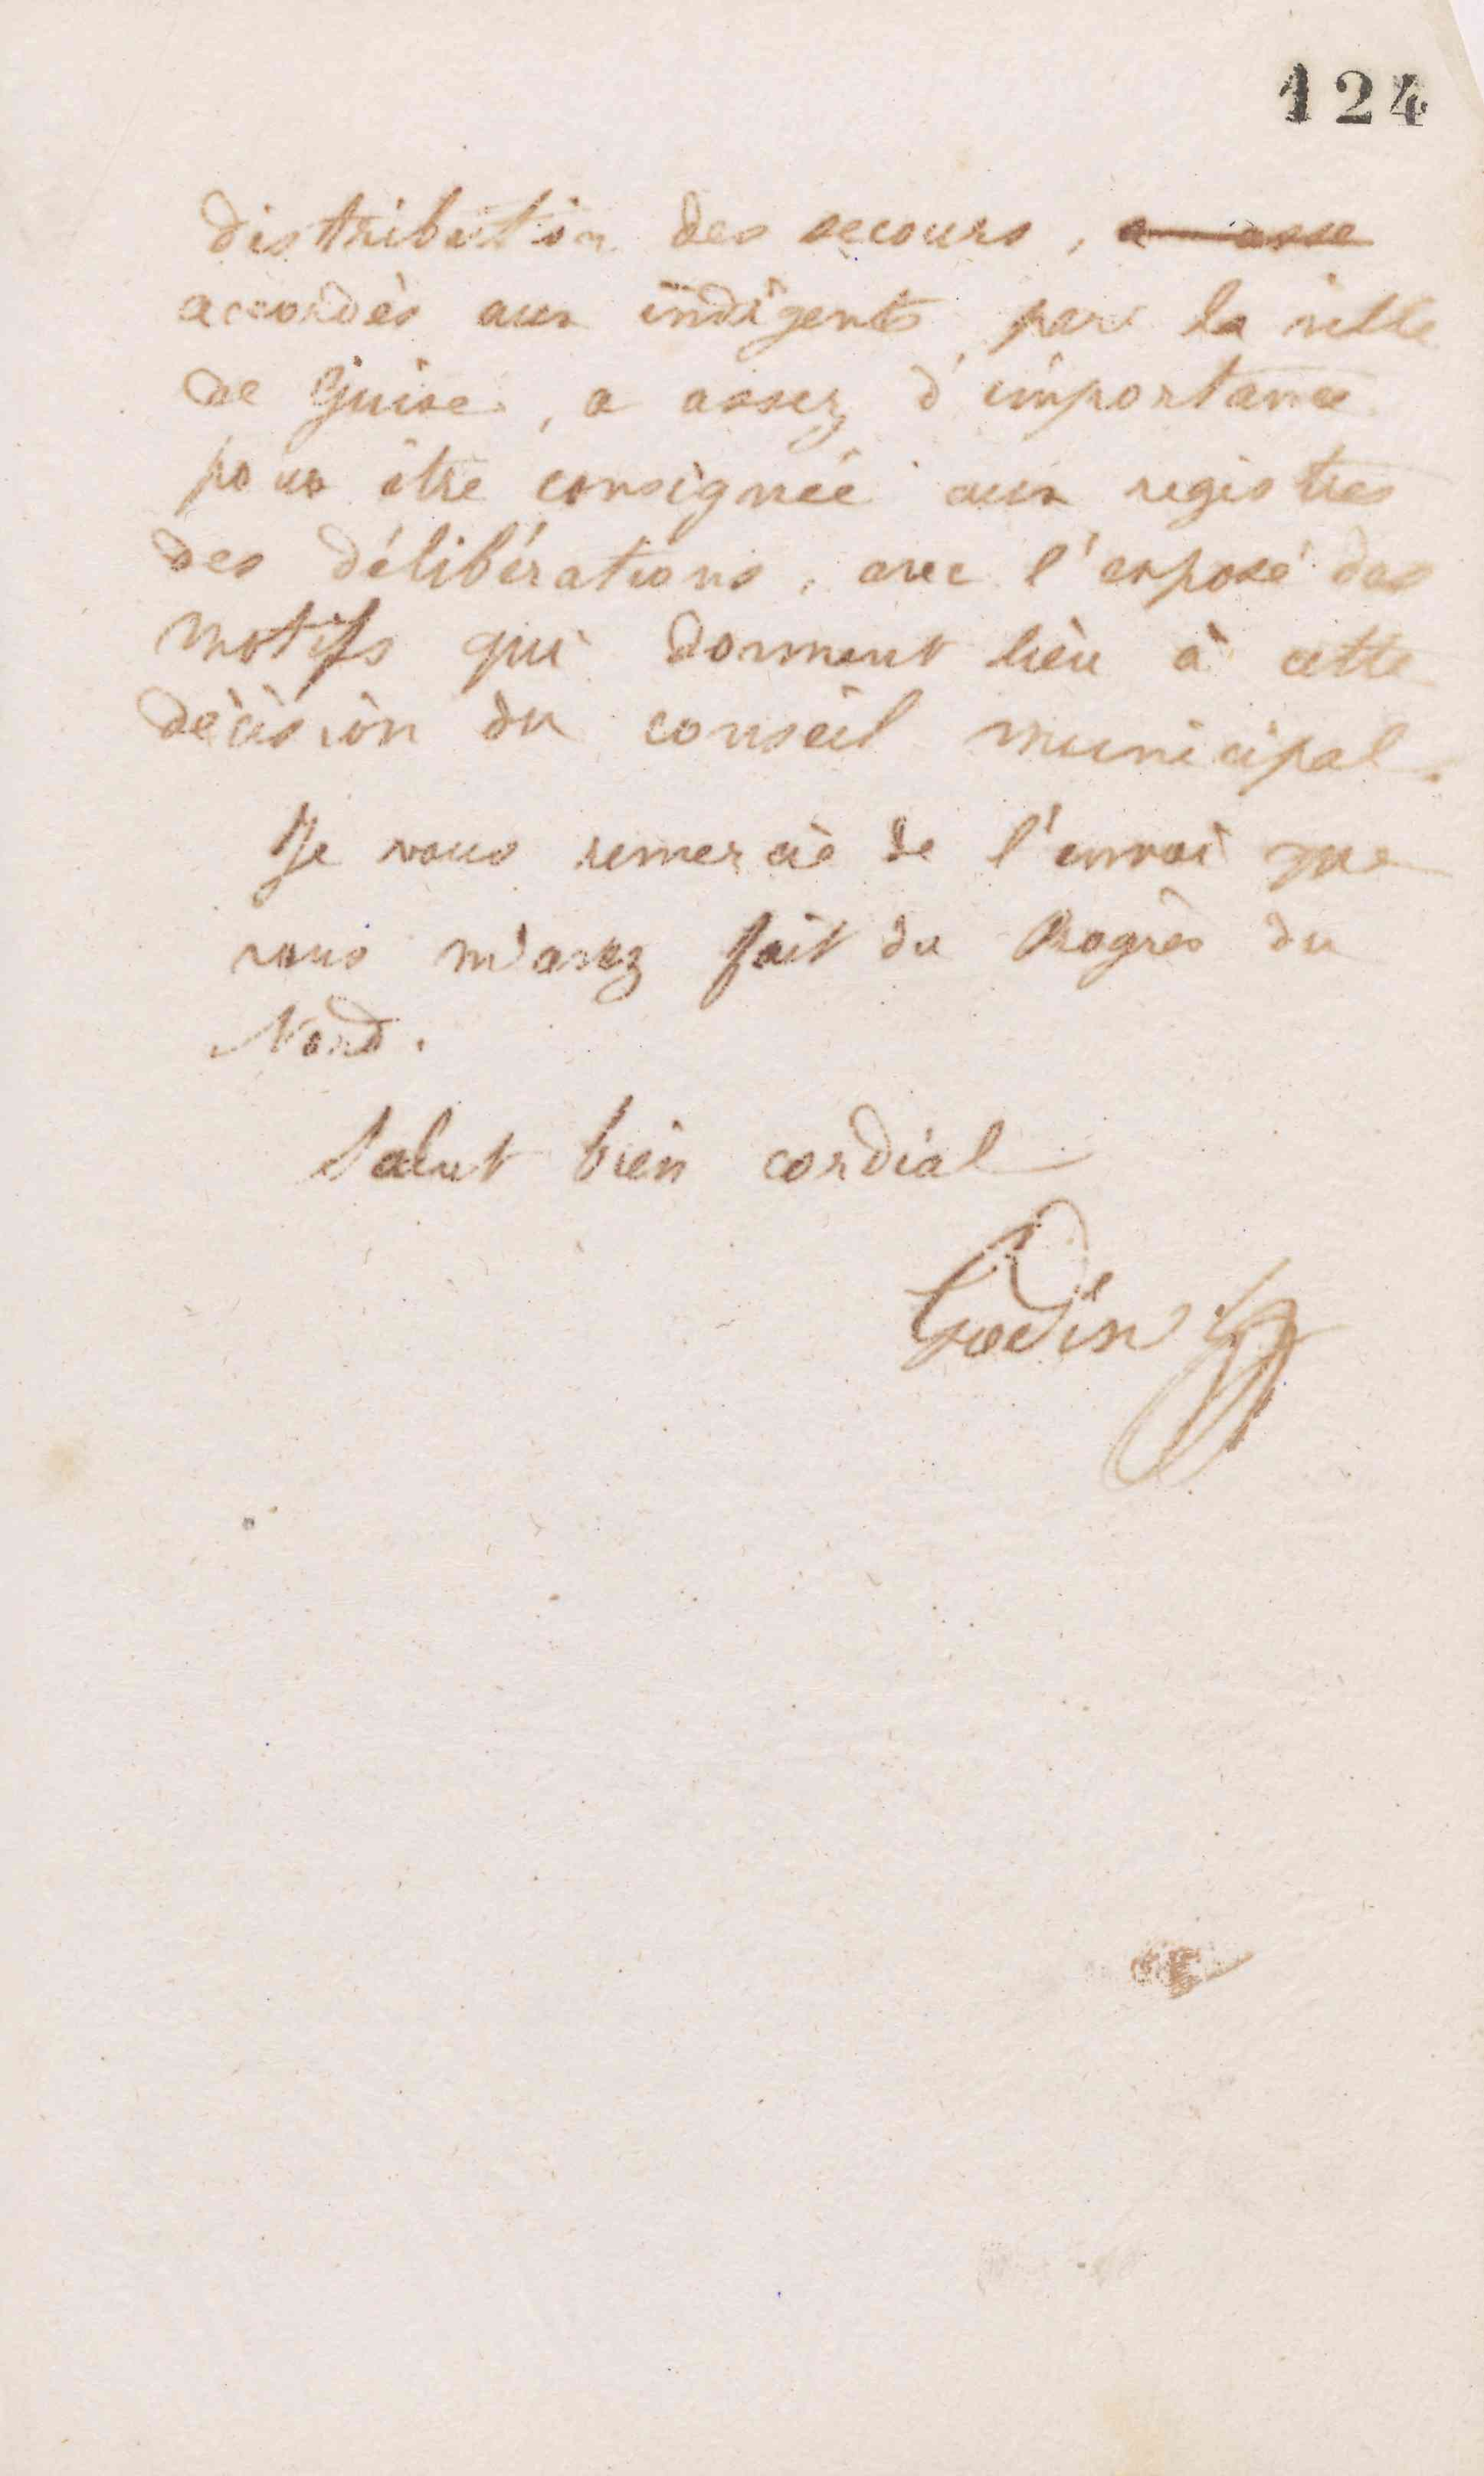 124
distribution des secours, a asse
accordés aux indigents par la ville
de Guise, a assez d'importance
pour être consignée aux registres
des délibérations, avec l'exposé des
motifs qui donnent lieu à cette
décision du conseil municipal.
Je vous remercie de l'envoi que
vous m'avez fait du Progrès du
Nord.
Salut bien cordial
Godin